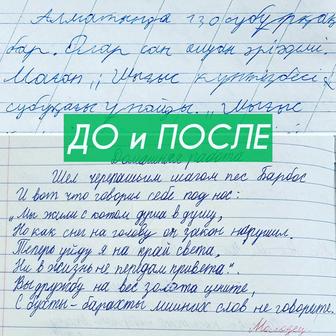 Алматыда 130 субұрқақ
бар. Олар сан алуан әрі әдемі.
Маған „Шығыс күнтізбесі"
субұрқағы ұнайды. „Шығыс
ДО и ПОСЛЕ
Домашняя работа
Шел черепашьим шагом пес Барбос
И вот что говорил себе под нос:
„Мы жили с котом душа в душу,
Но как снег на голову он закон нарушил.
Теперь уйду я на край света,
Ни в жизнь не передам привета".
Вы дружбу на вес золота цените,
С бухты-барахты лишних слов не говорите.
Молодец